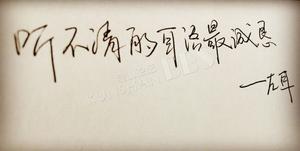 听不清的耳语最诚恳
—左耳